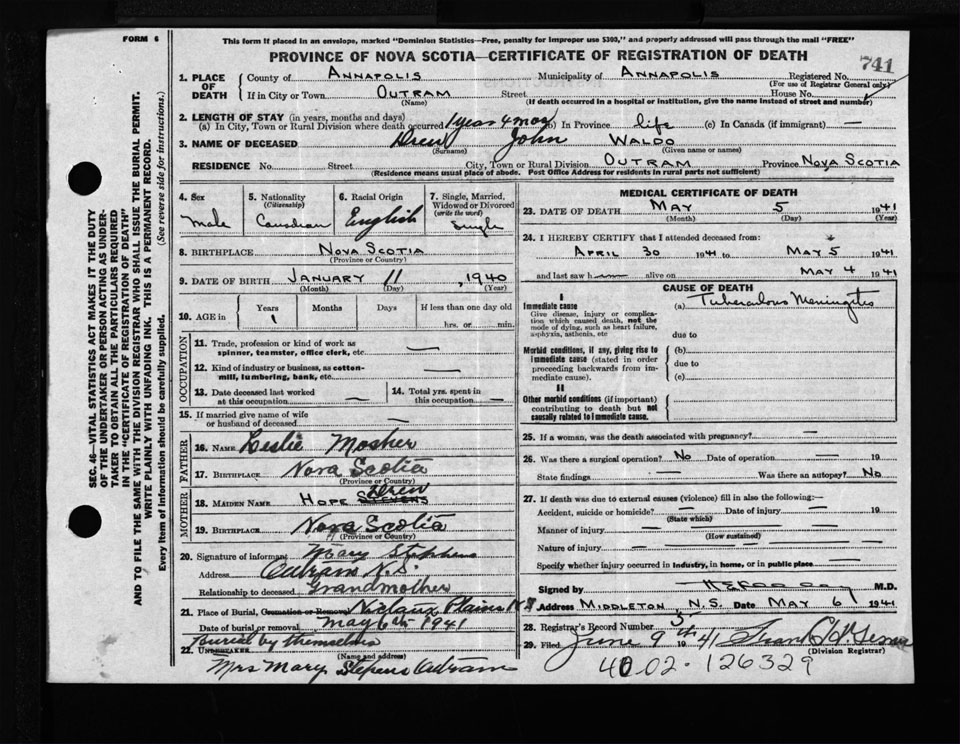 FORM 6
This form if placed in an envelope, marked "Dominion Statistics—Free, penalty for improper use $300," and properly addressed will pass through the mail "FREE"
PROVINCE OF NOVA SCOTIA—CERTIFICATE OF REGISTRATION OF DEATH
741
1. PLACE OF DEATH
County of ANNAPOLIS Municipality of ANNAPOLIS Registered No.
(For use of Registrar General only)
If in City or Town OUTRAM Street House No.
(Name) (If death occurred in a hospital or institution, give the name instead of street and number)
2. LENGTH OF STAY (in years, months and days)
(a) In City, Town or Rural Division where death occurred 1 year 4 mos (b) In Province life (c) In Canada (if immigrant) —
3. NAME OF DECEASED Drew John WALDO
(Surname) (Given name or names)
RESIDENCE No. Street City, Town or Rural Division OUTRAM Province NOVA SCOTIA
(Residence means usual place of abode. Post Office Address for residents in rural parts not sufficient)
4. Sex Male
5. Nationality (Citizenship) Canadian
6. Racial Origin English
7. Single, Married, Widowed or Divorced (write the word) Single
8. BIRTHPLACE NOVA SCOTIA
(Province or Country)
9. DATE OF BIRTH JANUARY 11, 1940
(Month) (Day) (Year)
10. AGE in Years Months Days If less than one day old
1 hrs. or min.
OCCUPATION
11. Trade, profession or kind of work as spinner, teamster, office clerk, etc —
12. Kind of industry or business, as cotton-mill, lumbering, bank, etc. —
13. Date deceased last worked at this occupation —
14. Total yrs. spent in this occupation —
15. If married give name of wife or husband of deceased —
FATHER
16. NAME Leslie Mosher
17. BIRTHPLACE Nova Scotia
(Province or Country)
MOTHER
18. MAIDEN NAME HOPE STEVENS Drew
19. BIRTHPLACE Nova Scotia
(Province or Country)
20. Signature of informant Mary Stephens
Address Outram N.S.
Relationship to deceased Grandmother
21. Place of Burial, Cremation or Removal Nictaux Plains N S
Date of burial or removal May 6th 1941
Burial by themselves
22. UNDERTAKER
(Name and address)
Mrs Mary Stepens Outram
MEDICAL CERTIFICATE OF DEATH
23. DATE OF DEATH MAY 5 1941
(Month) (Day) (Year)
24. I HEREBY CERTIFY that I attended deceased from:
APRIL 30 1941 to MAY 5 1941
and last saw h alive on MAY 4 1941
CAUSE OF DEATH
I
Immediate cause
Give disease, injury or complication which caused death, not the mode of dying, such as heart failure, asphyxia, asthenia, etc
(a) Tuberculous Meningitis
due to
Morbid conditions, if any, giving rise to immediate cause (stated in order proceeding backwards from immediate cause).
(b)
due to
(c)
II
Other morbid conditions (if important) contributing to death but not causally related to immediate cause.
25. If a woman, was the death associated with pregnancy? —
26. Was there a surgical operation? No Date of operation — 19
State findings Was there an autopsy? No
27. If death was due to external causes (violence) fill in also the following:—
Accident, suicide or homicide? — Date of injury — 19
(State which)
Manner of injury —
(How sustained)
Nature of injury —
Specify whether injury occurred in industry, in home, or in public place —
Signed by M.D.
Address MIDDLETON, N.S. Date MAY 6 1941
28. Registrar's Record Number 5
29. Filed June 9th 1941
(Division Registrar)
4002-126329
SEC. 46—VITAL STATISTICS ACT MAKES IT THE DUTY
OF THE UNDERTAKER OR PERSON ACTING AS UNDER-
TAKER TO OBTAIN ALL THE PARTICULARS REQUIRED
IN THE "CERTIFICATE OF REGISTRATION OF DEATH"
AND TO FILE THE SAME WITH THE DIVISION REGISTRAR WHO SHALL ISSUE THE BURIAL PERMIT.
WRITE PLAINLY WITH UNFADING INK. THIS IS A PERMANENT RECORD.
Every item of information should be carefully supplied. (See reverse side for instructions.)